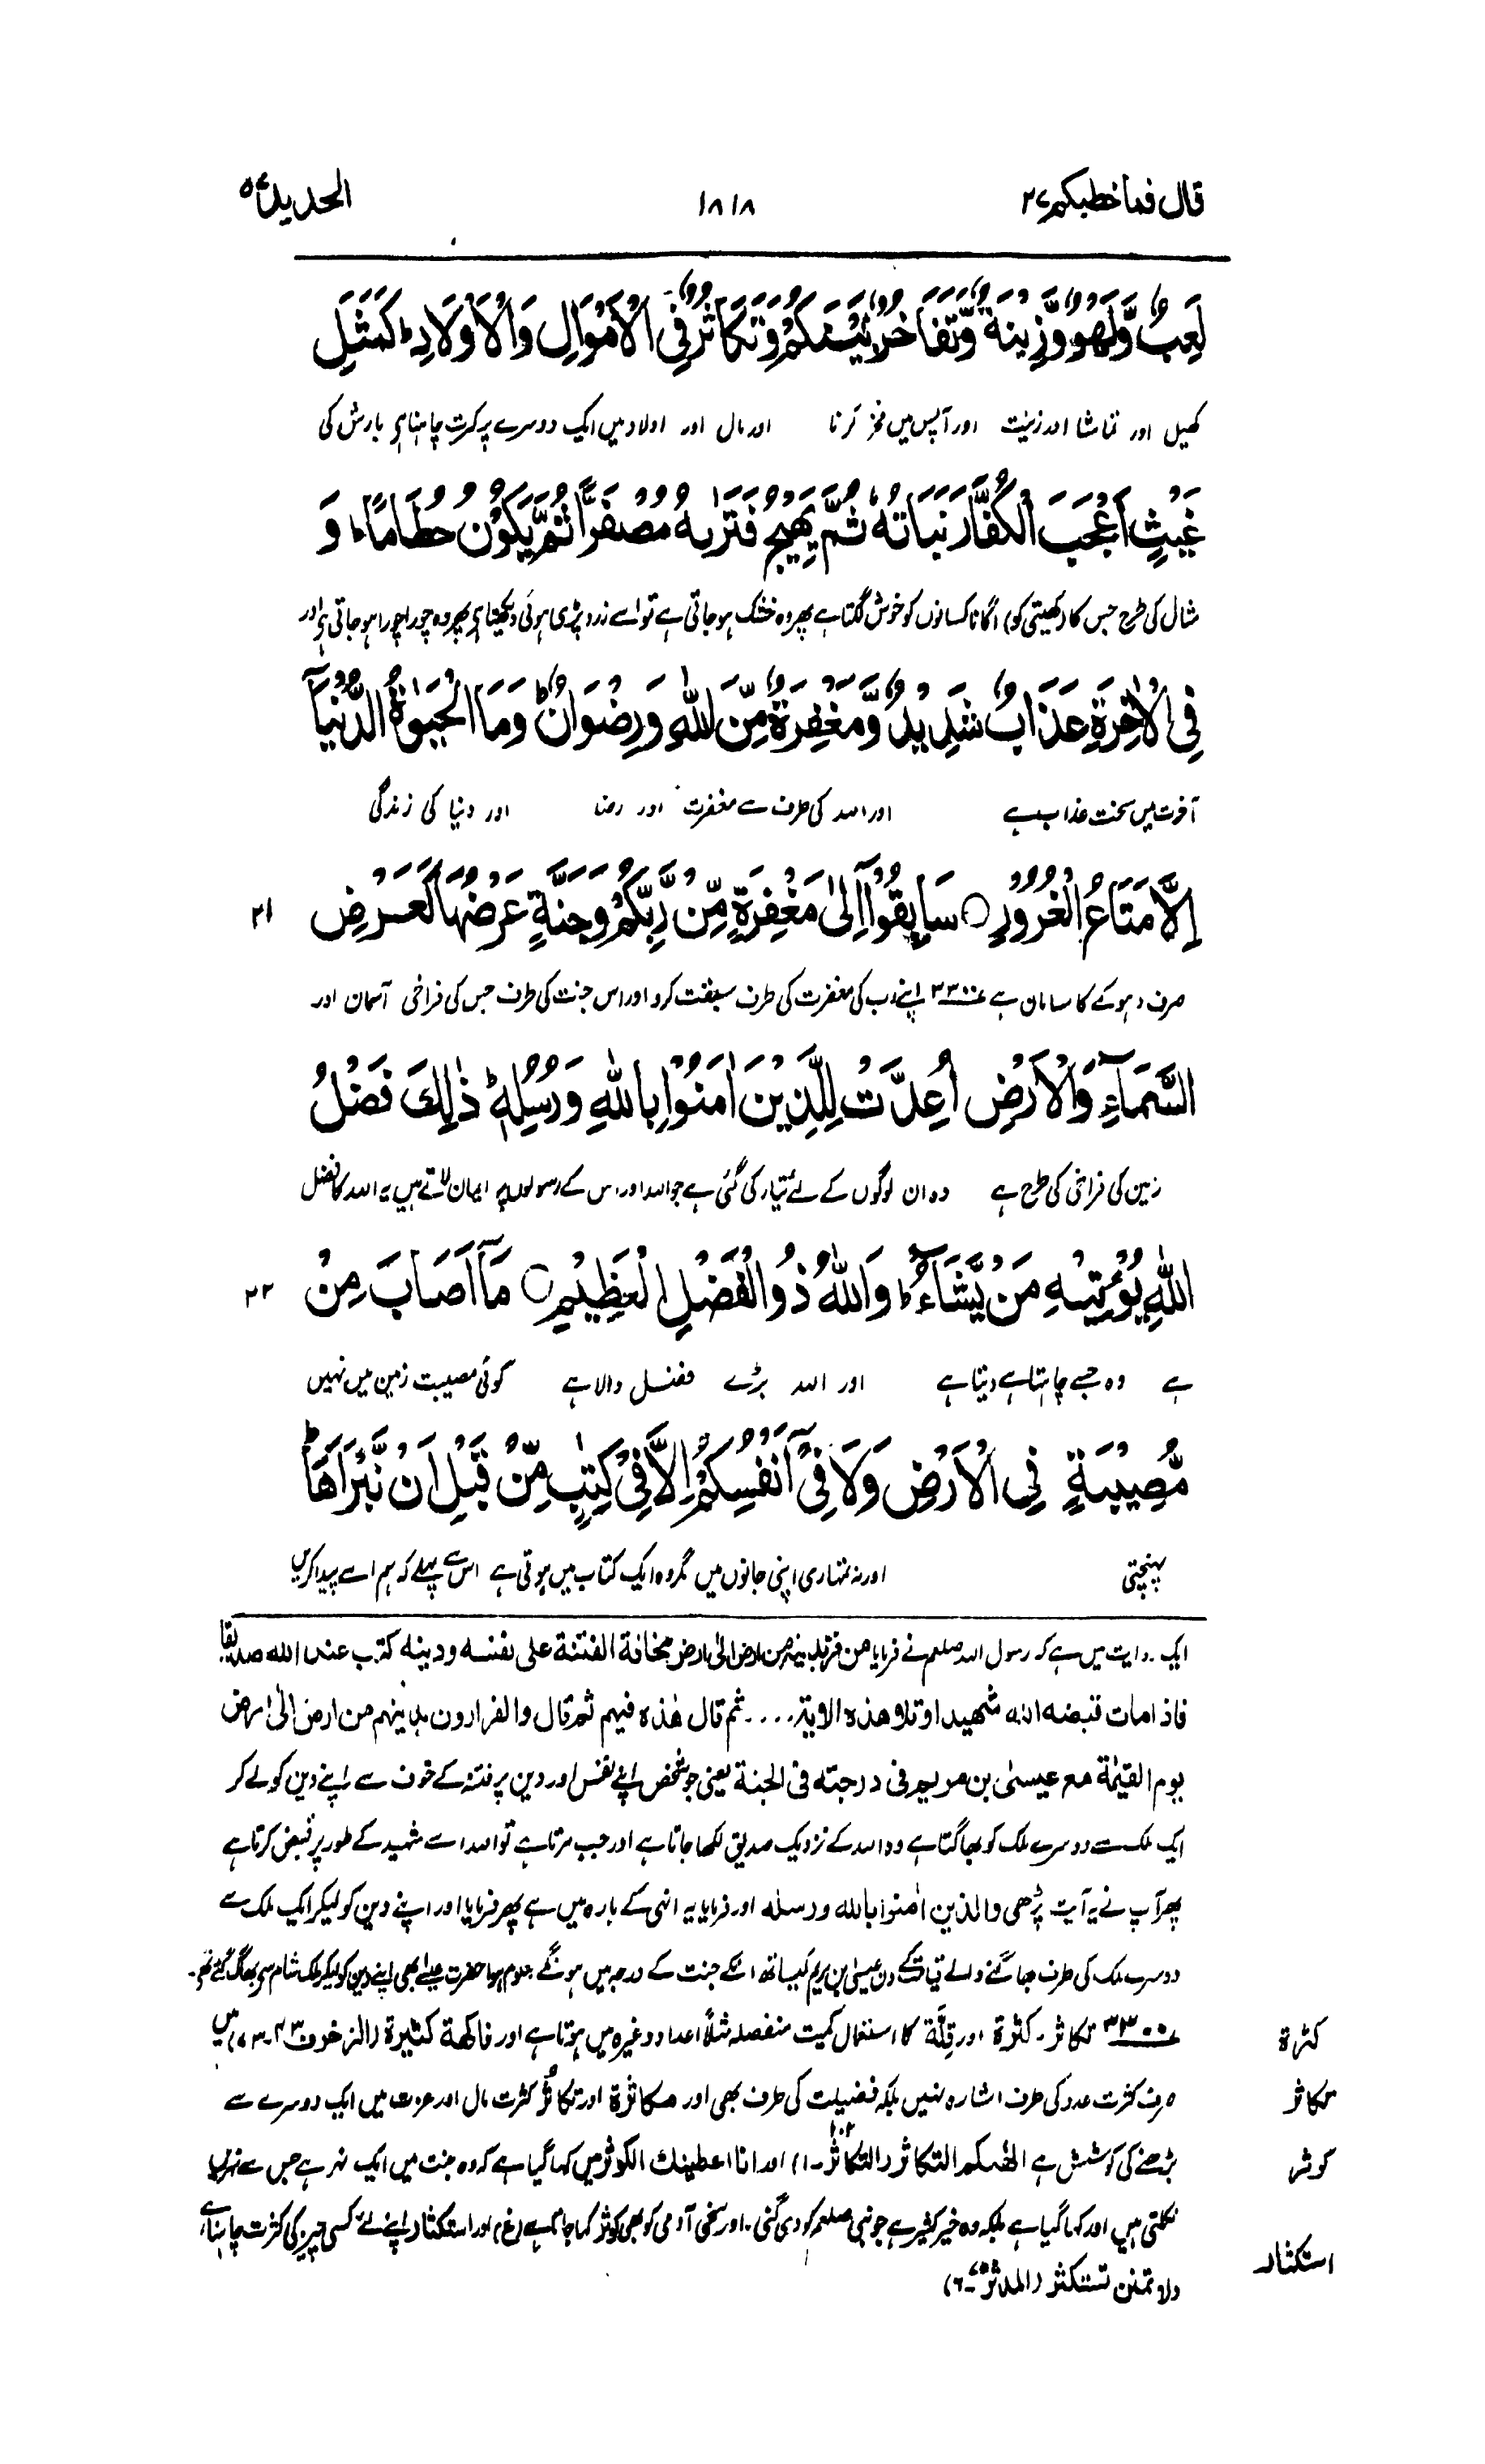 قال فما خطبکم ۲۷
۱۸۱۸
الحدید ۵۷
لَعِبٌ وَّلَهْوٌ وَّزِیْنَةٌ وَّتَفَاخُرٌۢ بَیْنَکُمْ وَتَکَاثُرٌ فِی الْاَمْوَالِ وَالْاَوْلَادِ ؕ کَمَثَلِ
کھیل اور تماشا اور زینت اور آپس میں فخر کرنا اور مال اور اولاد میں ایک دوسرے پر کثرت چاہنا ہے بارش کی
غَیْثٍ اَعْجَبَ الْکُفَّارَ نَبَاتُهٗ ثُمَّ یَهِیْجُ فَتَرٰىهُ مُصْفَرًّا ثُمَّ یَکُوْنُ حُطَامًا ؕ وَ
مثال کی طرح جس کا (کھیتی کو) اگانا کسانوں کو خوش لگتا ہے پھر وہ خشک ہو جاتی ہے تو اسے زرد پڑی ہوئی دیکھتا ہے پھر وہ چورا چورا ہو جاتی ہے اور
فِی الْاٰخِرَةِ عَذَابٌ شَدِیْدٌ وَّمَغْفِرَةٌ مِّنَ اللّٰهِ وَرِضْوَانٌ ؕ وَمَا الْحَیٰوةُ الدُّنْیَاۤ
آخرت میں سخت عذاب ہے اور اللہ کی طرف سے مغفرت اور رضا اور دنیا کی زندگی
اِلَّا مَتَاعُ الْغُرُوْرِ ○ سَابِقُوْۤا اِلٰی مَغْفِرَةٍ مِّنْ رَّبِّکُمْ وَجَنَّةٍ عَرْضُهَا کَعَرْضِ
۲۱
صرف دہوکے کا سامان ہے ۳۳۰۰ اپنے رب کی مغفرت کی طرف سبقت کرو اور اس جنت کی طرف جس کی فراخی آسمان اور
السَّمَآءِ وَالْاَرْضِ اُعِدَّتْ لِلَّذِیْنَ اٰمَنُوْا بِاللّٰهِ وَرُسُلِهٖ ؕ ذٰلِكَ فَضْلُ
زمین کی فراخی کی طرح ہے وہ ان لوگوں کے لئے تیار کی گئی ہے جو اللہ اور اس کے رسولوں پر ایمان لاتے ہیں یہ اللہ کا فضل
اللّٰهِ یُؤْتِیْهِ مَنْ یَّشَآءُ ؕ وَاللّٰهُ ذُو الْفَضْلِ الْعَظِیْمِ ○ مَاۤ اَصَابَ مِنْ
۲۲
ہے وہ جسے چاہتا ہے دیتا ہے اور اللہ بڑے فضل والا ہے کوئی مصیبت زمین میں نہیں
مُّصِیْبَةٍ فِی الْاَرْضِ وَلَا فِیْۤ اَنْفُسِکُمْ اِلَّا فِیْ کِتٰبٍ مِّنْ قَبْلِ اَنْ نَّبْرَاَهَا ؕ
پہنچتی اور نہ تمہاری اپنی جانوں میں مگر وہ ایک کتاب میں ہوتی ہے اس سے پہلے کہ ہم اسے پیدا کریں
ایک روایت میں ہے کہ رسول اللہ صلعم نے فرمایا من فر بدینه من ارض الی ارض مخافة الفتنة علی نفسه ودینه کتب عند الله صدیقا
فاذا مات قبضه الله شهیدا وتلا هذه الایة.... ثم قال هذه فیهم ثم قال والفرارون بدینهم من ارض الی ارض
یوم القیٰمة مع عیسیٰ بن مریم فی درجته فی الجنة یعنی جو شخص اپنے نفس اور دین پر فتنہ کے خوف سے اپنے دین کو لے کر
ایک ملک سے دوسرے ملک کو بھاگتا ہے وہ اللہ کے نزدیک صدیق لکھا جاتا ہے اور جب مرتا ہے تو اللہ اسے شہید کے طور پر قبض کرتا ہے
پھر آپ نے یہ آیت پڑھی والذین اٰمنوا بالله ورسله اور فرمایا یہ انہی کے بارہ میں ہے پھر فرمایا اور اپنے دین کو لیکر ایک ملک سے
دوسرے ملک کی طرف بھاگنے والے قیامت کے دن عیسیٰ بن مریم کیساتھ انکے جنت کے درجہ میں ہونگے معلوم ہوا حضرت عیسےٰ بھی اپنے دین کو لیکر ملک شام سے بھاگ گئے تھے۔
۳۳۰۰ تکاثر۔ کثرة اور قِلَّة کا استعمال کمیت منفصلہ مثلاً اعداد وغیرہ میں ہوتا ہے اور فاکهة کثیرة (الزخرف ۴۳۔۷۳) میں
کثرة
صرف کثرت عدد کی طرف اشارہ نہیں بلکہ فضیلت کی طرف بھی اور مکاثرة اور تکاثر کثرت مال اور عزت میں ایک دوسرے سے
تکاثر
بڑھنے کی کوشش ہے الهٰکم التکاثر (التکاثر ۱۰۲۔۱) اور انا اعطینٰك الکوثر میں کہا گیا ہے کہ وہ جنت میں ایک نہر ہے جس سے نہریں
کوثر
نکلتی ہیں اور کہا گیا ہے بلکہ وہ خیر کثیر ہے جو نبی صلعم کو دی گئی۔ اور سخی آدمی کو بھی کوثر کہا جاتا ہے (غ) اور استکثار اپنے لئے کسی چیز کی کثرت چاہنا ہے،
استکثار
ولا تمنن تستکثر (المدثر ۷۴۔۶)